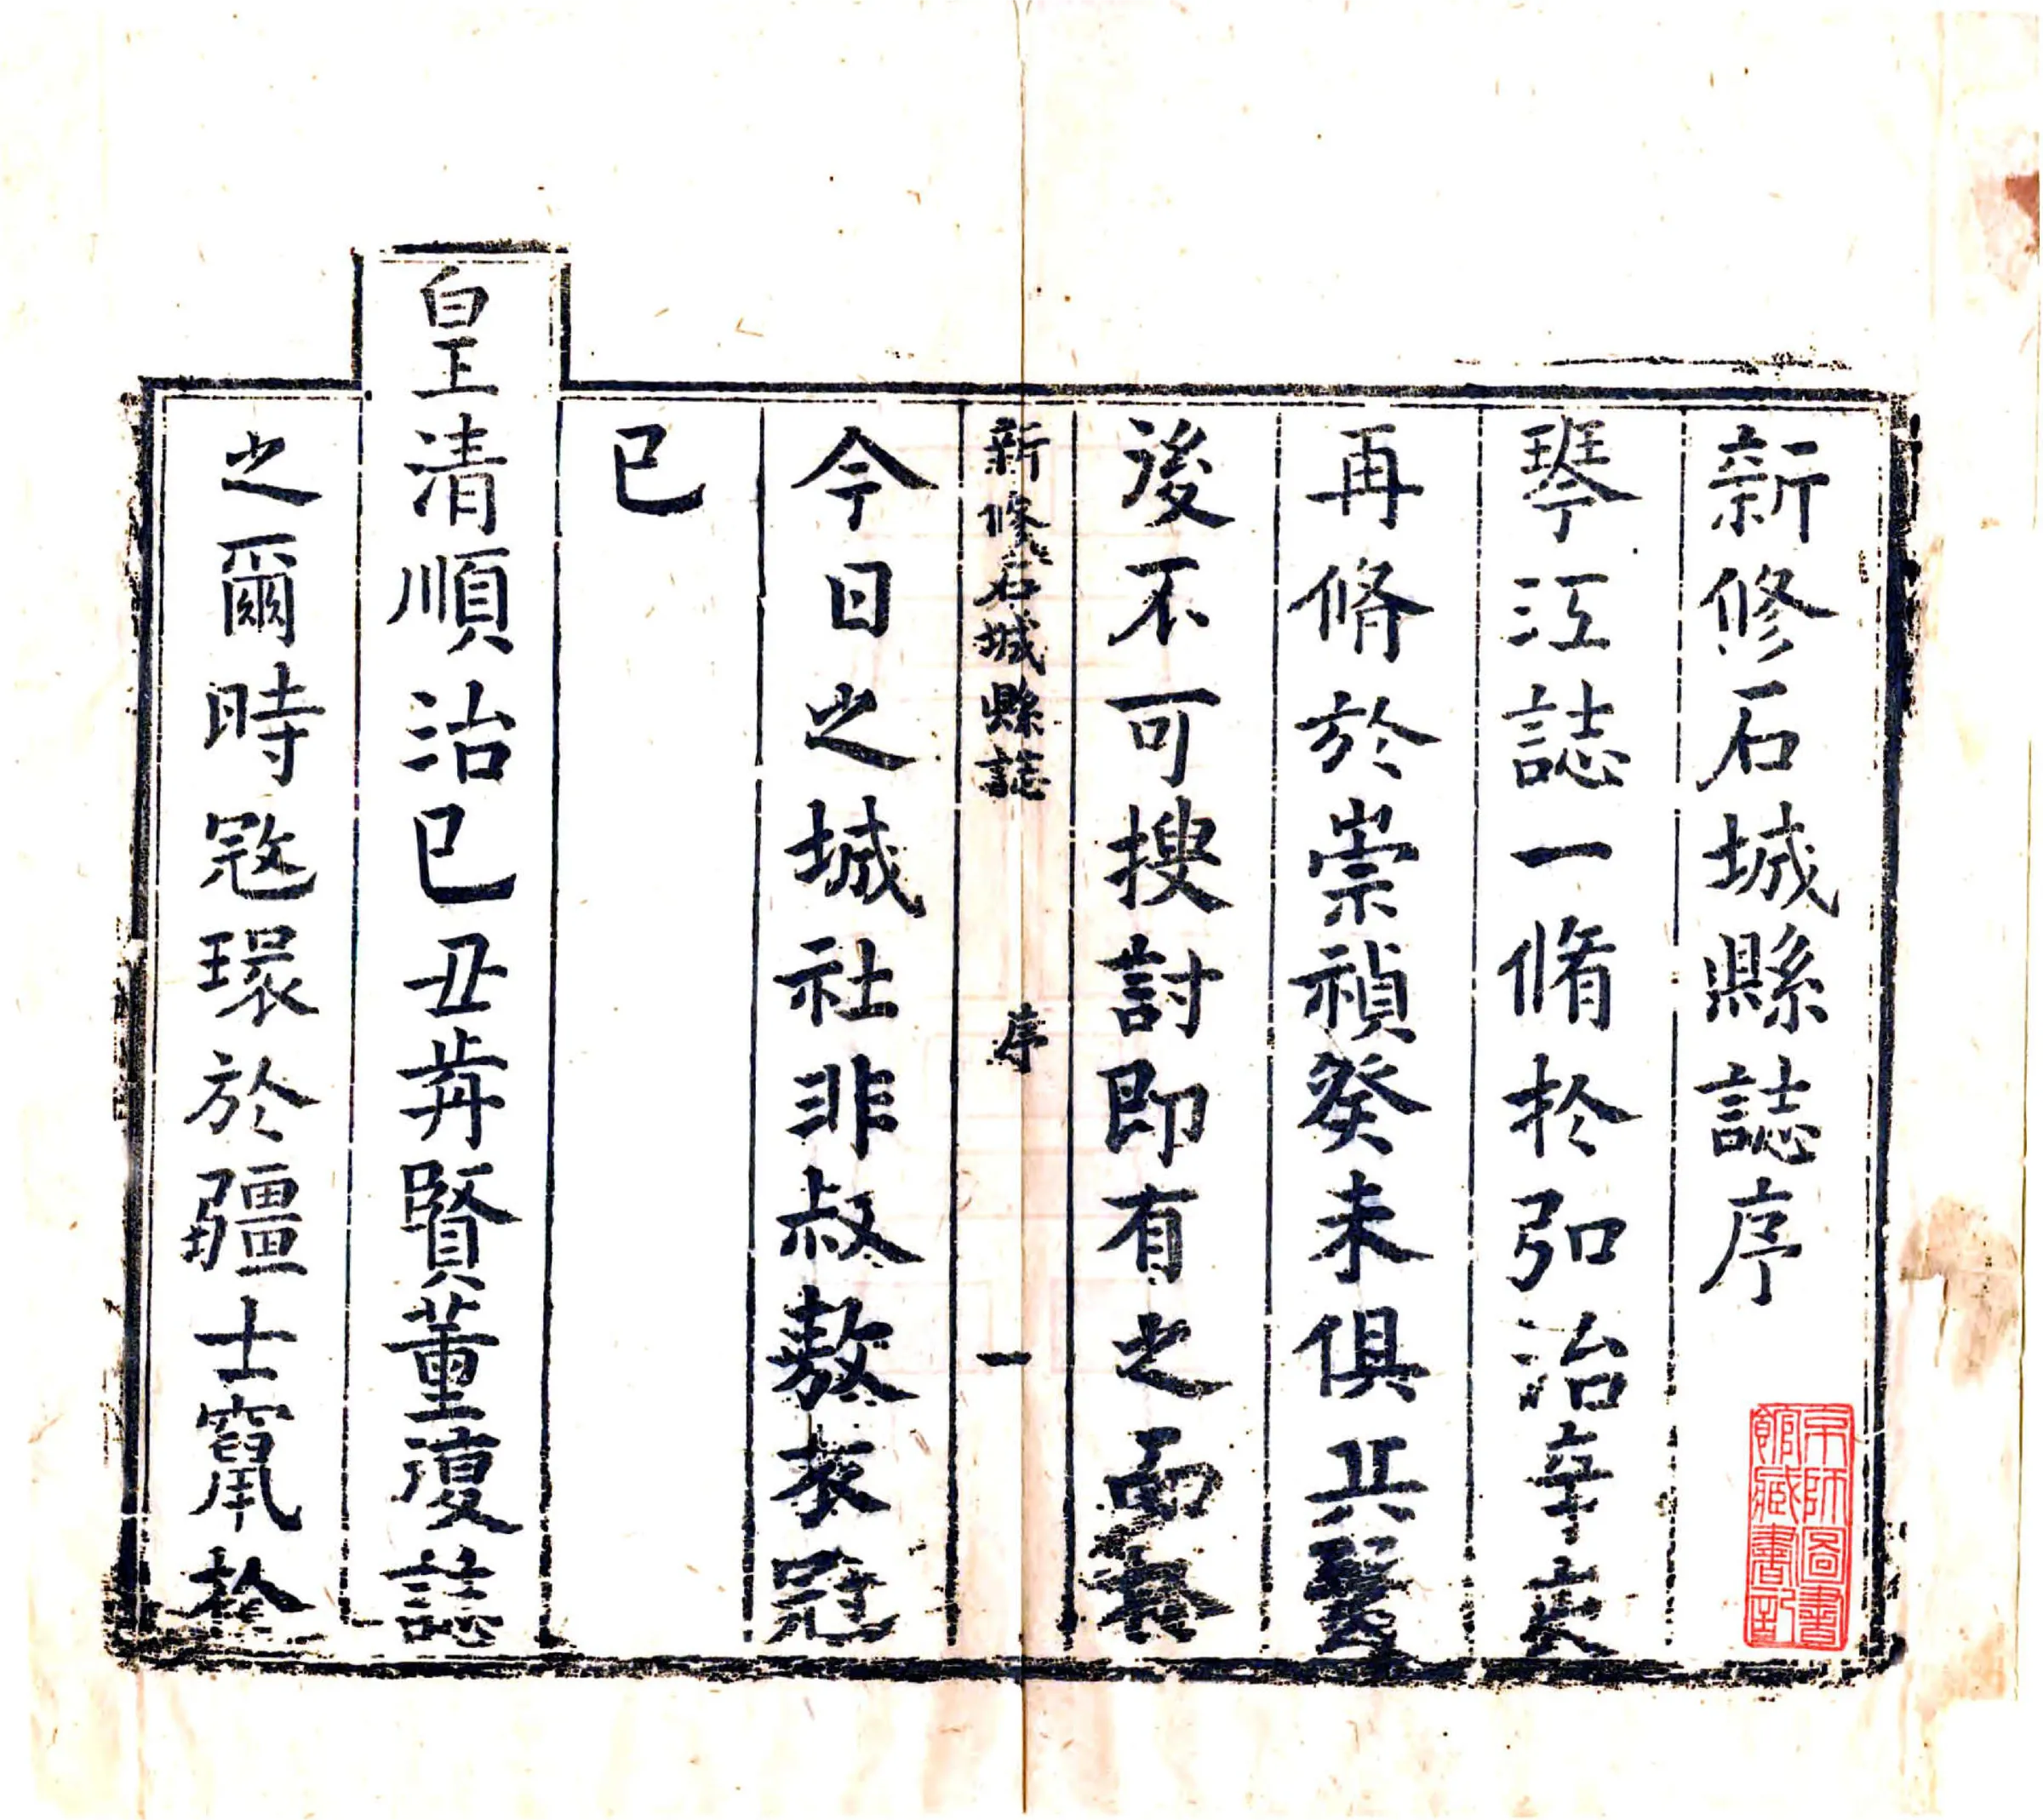 新修石城縣誌序
琴江誌一脩扵弘治辛亥
再脩於崇禎癸未俱兵燹
後不可搜討即有之而
新修石城縣誌 序 一
今日之城社非叔敖衣冠
已
皇清順治己丑歬賢董誌
之爾時寇環於疆士竄扵
京師圖書
館藏書記